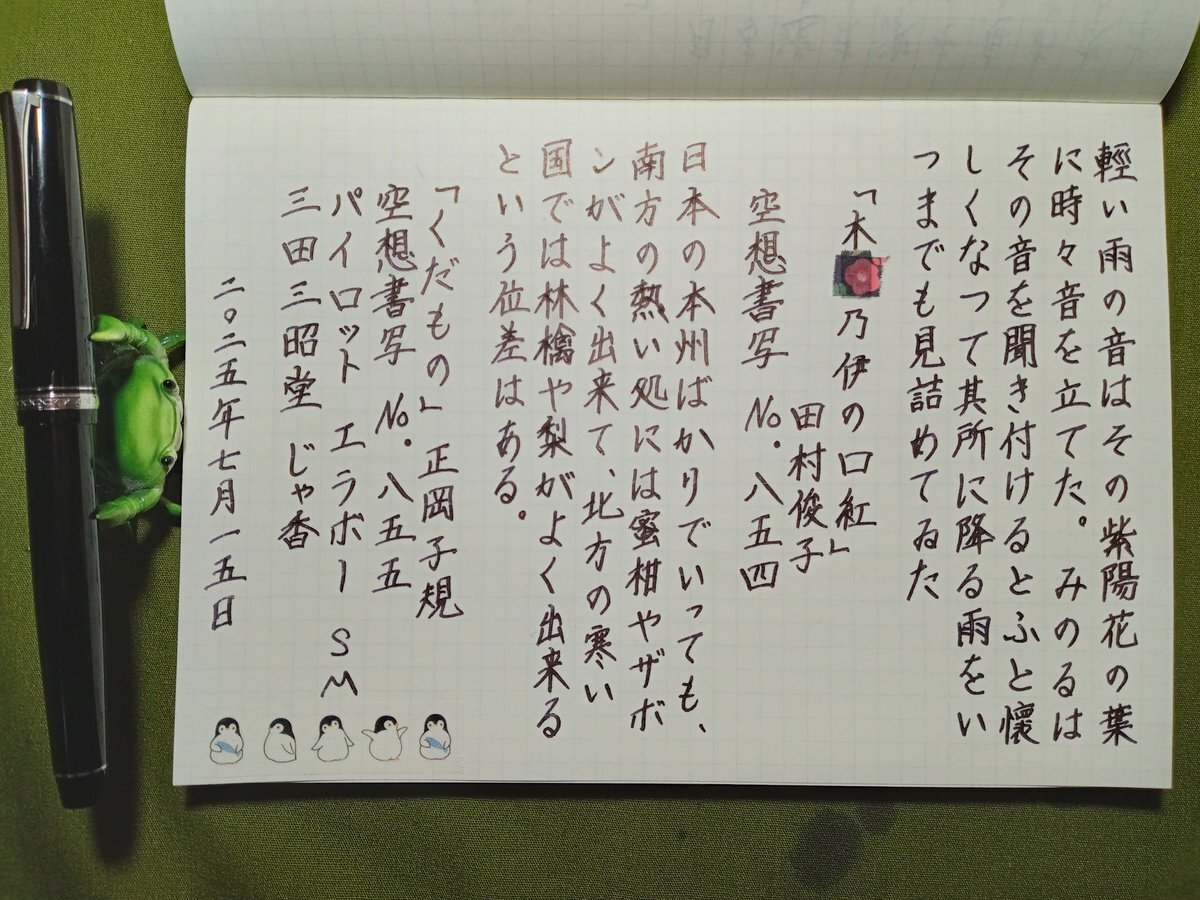 輕い雨の音はその紫陽花の葉
に時々音を立てた。みのるは
その音を聞き付けるとふと懷
しくなつて其所に降る雨をい
つまでも見詰めてゐた
「木乃伊の口紅」
田村俊子
空想書写 No.八五四
日本の本州ばかりでいっても、
南方の熱い処には蜜柑やザボ
ンがよく出来て、北方の寒い
国では林檎や梨がよく出来る
という位差はある。
「くだもの」正岡子規
空想書写 No.八五五
パイロット エラボー SM
三田三昭堂 じゃ香
二〇二五年七月一五日